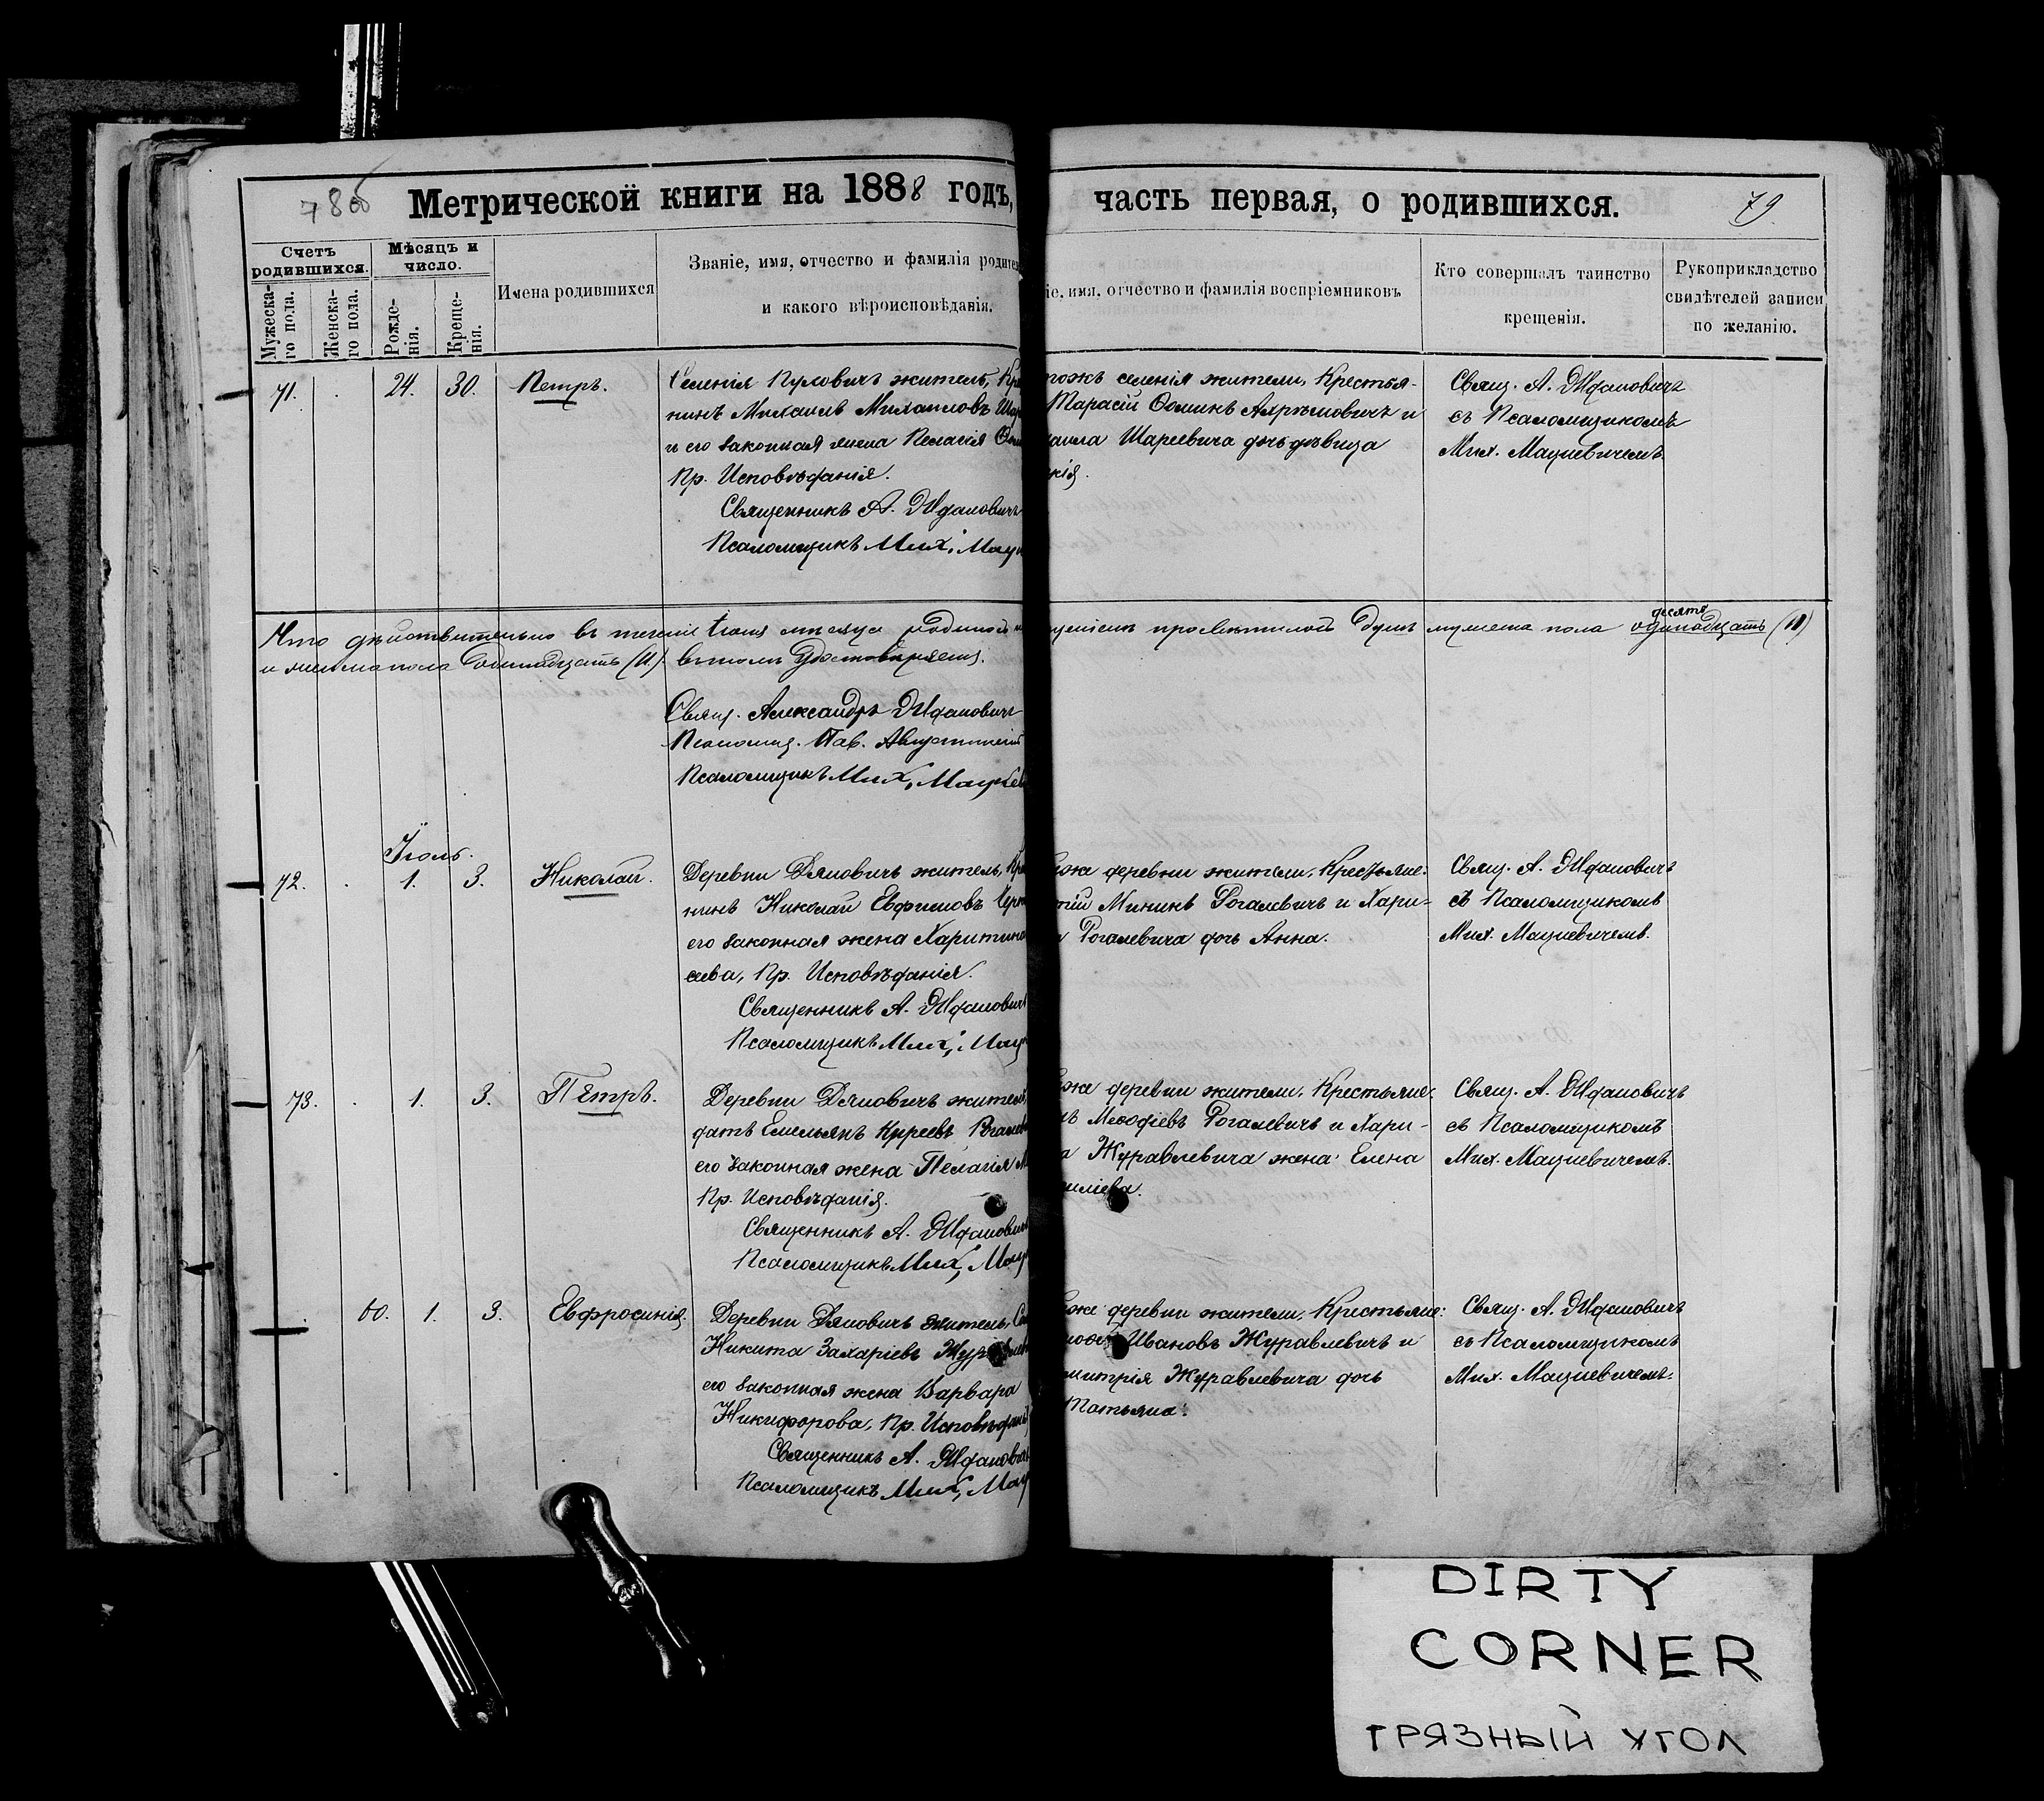 78об
Метрической книги на 1888 годъ,
часть первая, о родившихся.
79
Счетъ родившихся.
Мѣсяцъ и число.
Мужеска-го пола.
Женска-го пола.
Рожде-нія.
Креще-нія.
Имена родившихся
Званіе, имя, отчество и фамилія
и какого вѣроисповѣданія.
имя, отчество и фамилія воспріемниковъ
Кто совершалъ таинство
крещенія.
Рукоприкладство
свидѣтелей записи
по желанію.
71. 24. 30. Петръ.
Селенія Пуловичъ житель,
нинъ Михаилъ Михаиловъ
и его законная жена Пелагія
Пр. Исповѣданія.
Священникъ А. Ждановичъ
Псаломщикъ Мих.
селенія жители, Крестья-
Тарасій Ѳоминъ и
Шареевича дочь дѣвица
Свящ. А. Ждановичъ
съ Псаломщикомъ
Мих. Мацкевичемъ.
Что дѣйствительно въ теченіе Іюня мѣсяца
просвѣтилось душъ мужеска пола одинадцать (11)
десять
и женска пола одинадцать (11). въ томъ удостовѣряемъ.
Свящ. Александръ Ждановичъ
Псаломщ. Пав.
Псаломщикъ Мих.
Іюль.
72. 1. 3. Николай.
Деревни Дяновичъ житель,
нинъ Николай Евфимовъ
его законная жена Харитина
Пр. Исповѣданія.
Священникъ А. Ждановичъ
Псаломщикъ Мих.
деревни жители, Крестьяне:
Мининъ Рогалевичъ и Хари-
Рогалевича дочь Анна.
Свящ. А. Ждановичъ
съ Псаломщикомъ
Мих. Мацкевичемъ.
73. 1. 3. Петръ.
Деревни Дяновичъ житель,
датъ Емельянъ Киреевъ
его законная жена Пелагія
Пр. Исповѣданія.
Священникъ А. Ждановичъ
Псаломщикъ Мих.
деревни жители, Крестьяне:
Меѳодіевъ Рогалевичъ и Хари-
Журавлевича жена Елена
Свящ. А. Ждановичъ
съ Псаломщикомъ
Мих. Мацкевичемъ.
60. 1. 3. Евфросинія.
Деревни Дяновичъ житель,
Никита Захаріевъ
его законная жена Варвара
Никифорова, Пр. Исповѣданія
Священникъ А. Ждановичъ
Псаломщикъ Мих.
деревни жители, Крестьяне:
Ивановъ Журавлевичъ и
Журавлевича дочь
Татьяна.
Свящ. А. Ждановичъ
съ Псаломщикомъ
Мих. Мацкевичемъ.
DIRTY
CORNER
ГРЯЗНЫЙ УГОЛ